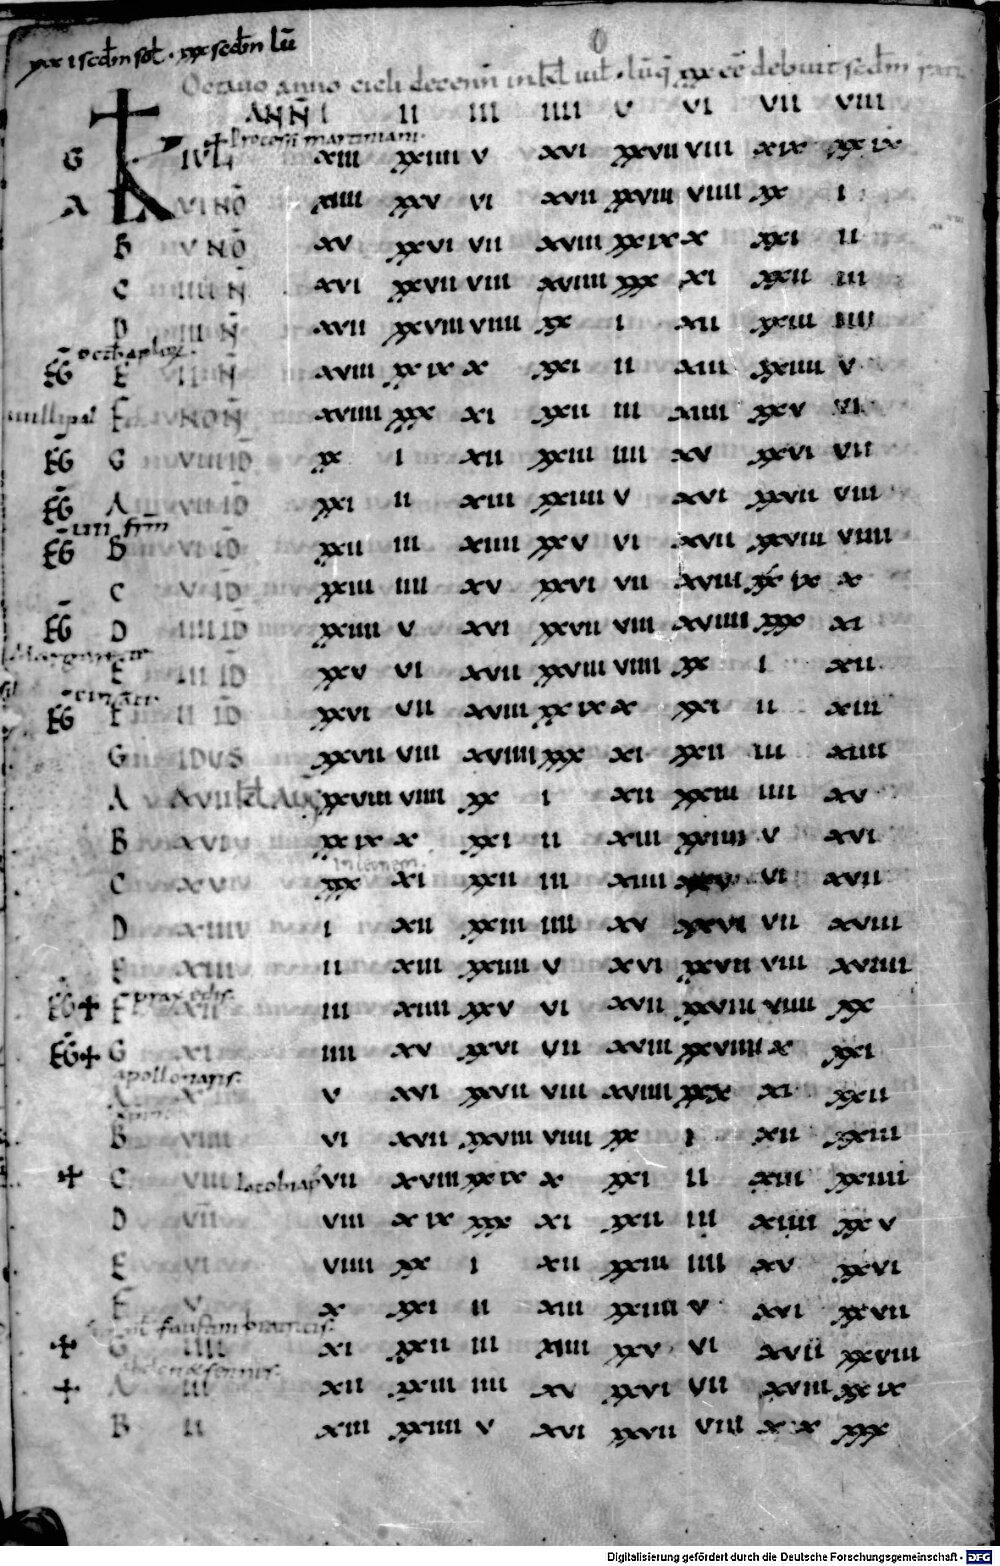 xxx i scdm sol · xxx scdm lū
Octauo anno cicli decenn in kl iul · lūq xxx eē debuit scdm
ANN I II III IIII V VI VII VIII
+ Processi martiniani
G K IVL xiii xxiiii v xvi xxvii viii xix xxix
A VI NO xiiii xxv vi xvii xxviii viiii xx i
B V NO xv xxvi vii xviii xxix x xxi ii
C IIII N xvi xxvii viii xviiii xxx xi xxii iii
D III N xvii xxviii viiii xx i xii xxiii iiii
Octab aplor
EG E II N xviii xxix x xxi ii xiii xxiiii v
F NON xviiii xxx xi xxii iii xiiii xxv vi
EG G VIII ID xx i xii xxiii iiii xv xxvi vii
EG A VII ID xxi ii xiii xxiiii v xvi xxvii viii
VII frm
EG B VI ID xxii iii xiiii xxv vi xvii xxviii viiii
C V ID xxiii iiii xv xxvi vii xviii xxix x
EG D IIII ID xxiiii v xvi xxvii viii xviiii xxx xi
Margarite
E III ID xxv vi xvii xxviii viiii xx i xii
EG F II ID xxvi vii xviii xxix x xxi ii xiii
G IDUS xxvii viii xviiii xxx xi xxii iii xiiii
A XVII kl AUG xxviii viiii xx i xii xxiii iiii xv
B XVI xxix x xxi ii xiii xxiiii v xvi
C XV xxx xi xxii iii xiiii xxv vi xvii
D XIIII i xii xxiii iiii xv xxvi vii xviii
E XIII ii xiii xxiiii v xvi xxvii viii xviiii
praxedis
EG+ F XII iii xiiii xxv vi xvii xxviii viiii xx
EG+ G XI iiii xv xxvi vii xviii xxviiii x xxi
apollonaris
A X v xvi xxvii viii xviiii xxx xi xxii
B VIIII vi xvii xxviii viiii xx i xii xxiii
+ C VIII Iacobi ap vii xviii xxix x xxi ii xiii xxiiii
D VII viii xix xxx xi xxii iii xiiii xxv
E VI viiii xx i xii xxiii iiii xv xxvi
F V x xxi ii xiii xxiiii v xvi xxvii
faustini
+ G IIII xi xxii iii xiiii xxv vi xvii xxviii
+ A III xii xxiii iiii xv xxvi vii xviii xxix
B II xiii xxiiii v xvi xxvii viii x x xxx
Digitalisierung gefördert durch die Deutsche Forschungsgemeinschaft - DFG